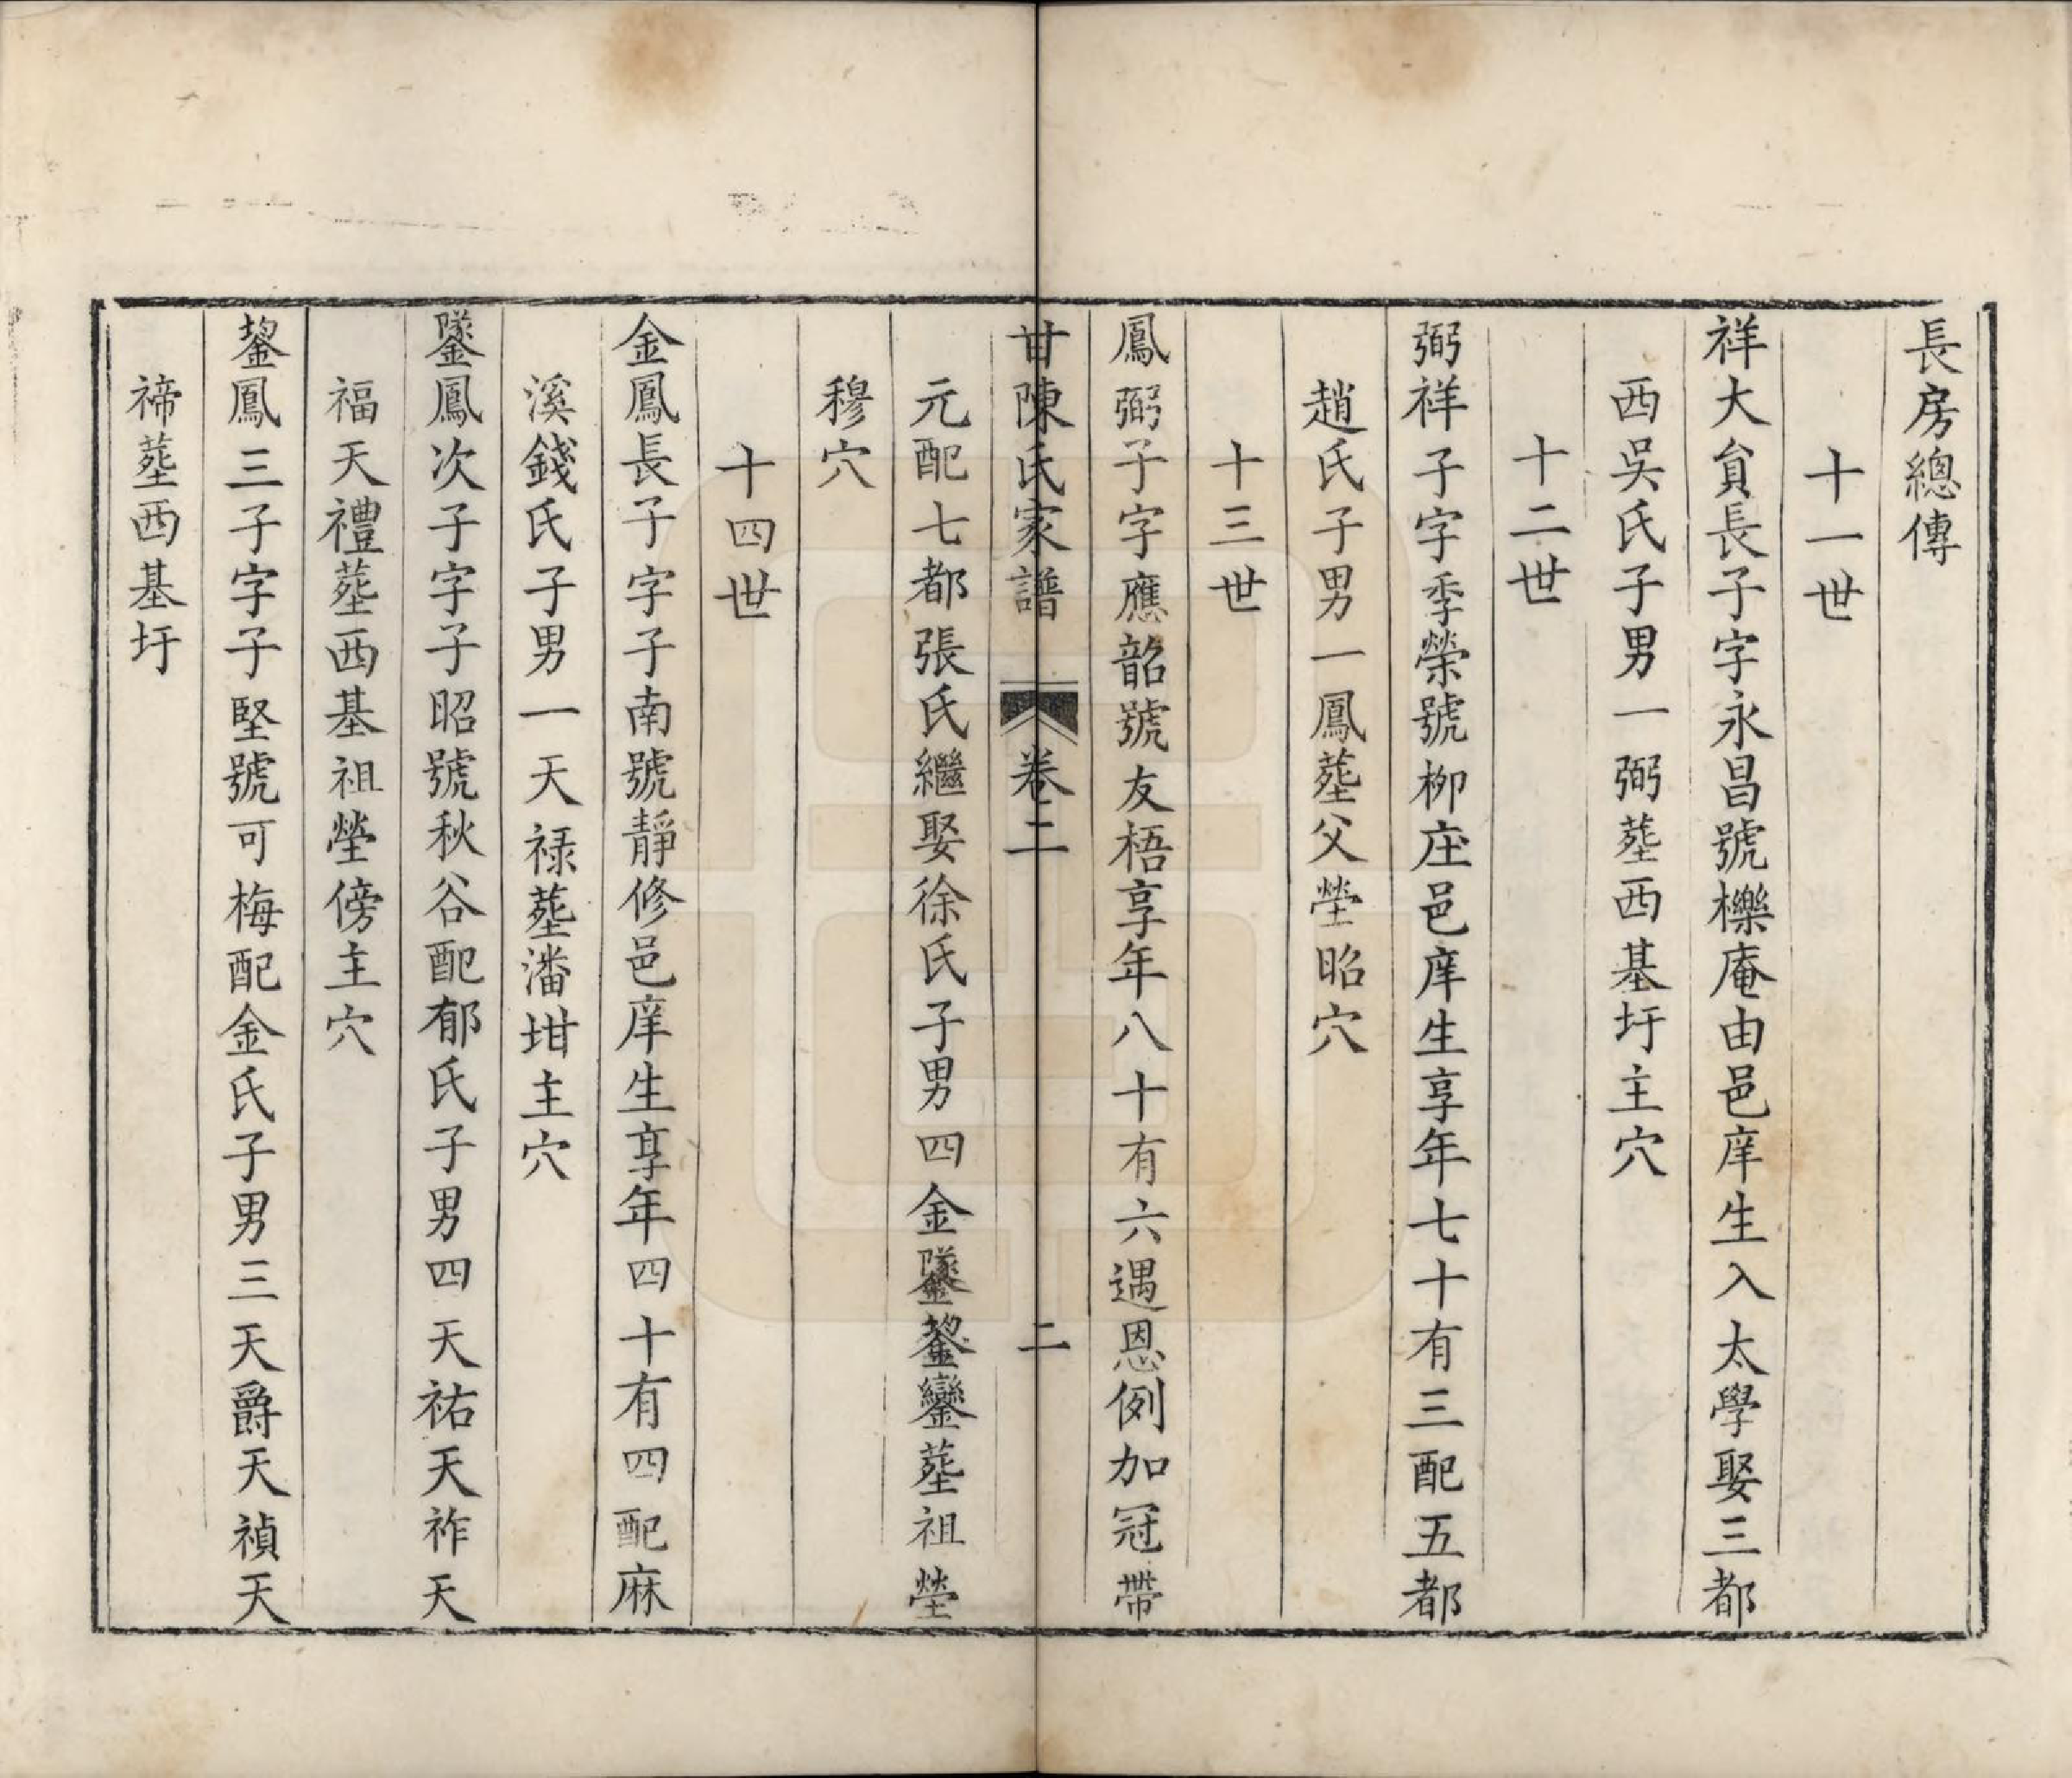 長房總傳
十一世
祥大貟長子字永昌號櫟庵由邑庠生入太學娶三都
西吳氏子男一弼塟西基圩主穴
十二世
弼祥子字季榮號柳庄邑庠生享年七十有三配五都
趙氏子男一鳳塟父塋昭穴
十三世
鳳弼子字應韶號友梧享年八十有六遇恩例加冠帶
甘陳氏家譜 卷二 二
元配七都張氏繼娶徐氏子男四金鐆鋆鑾塟祖塋
穆穴
十四世
金鳳長子字子南號靜修邑庠生享年四十有四配麻
溪錢氏子男一天祿塟潘坩主穴
鐆鳳次子字子昭號秋谷配郁氏子男四天祐天祚天
福天禮塟西基祖塋傍主穴
鋆鳳三子字子堅號可梅配金氏子男三天爵天禎天
禘塟西基圩